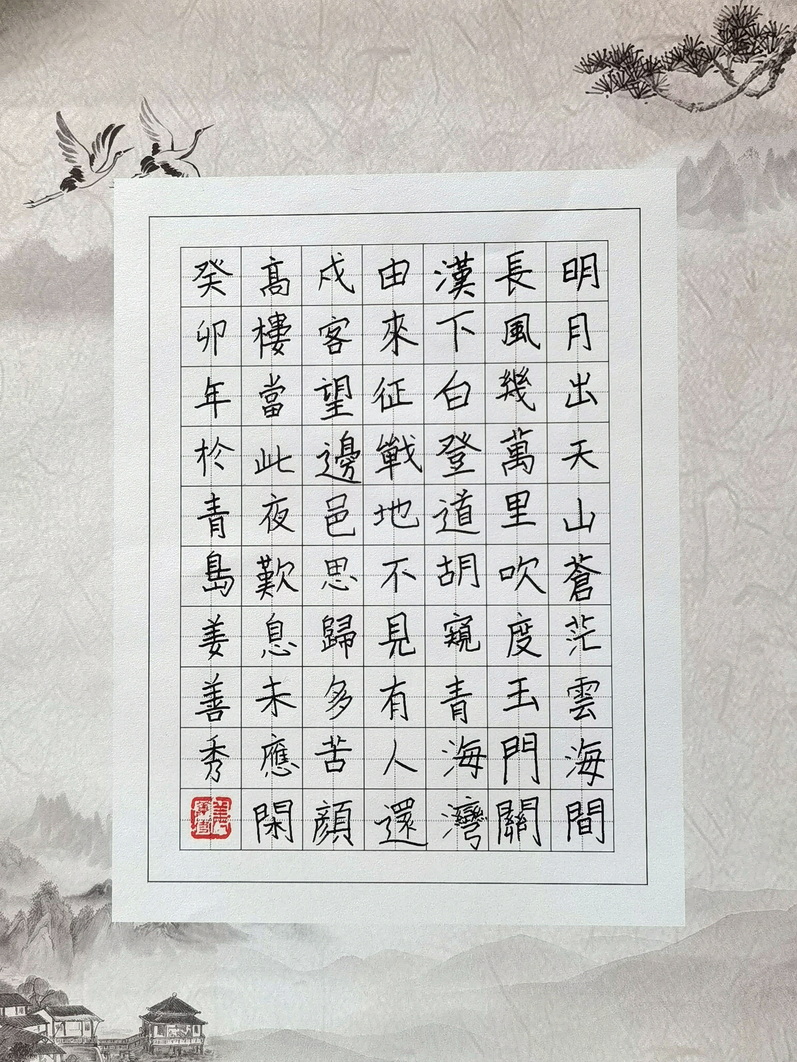 明月出天山蒼茫雲海間
長風幾萬里吹度玉門關
漢下白登道胡窺青海灣
由來征戰地不見有人還
戍客望邊邑思歸多苦顏
高樓當此夜歎息未應閑
癸卯年於青島姜善秀